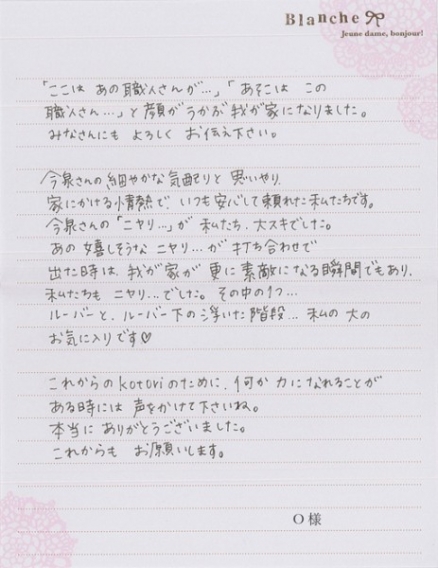 Blanche
Jeune dame, bonjour!
「ここは あの職人さんが…」「あそこは この
職人さん…」と顔がうかぶ我が家になりました。
みなさんにも よろしく お伝え下さい。
今泉さんの細やかな気配りと 思いやり、
家にかける情熱で、いつも安心して頼れた私たちです。
今泉さんの「ニヤリ…」が 私たち、大スキでした。
あの 嬉しそうな ニヤリ…が 打ち合わせで
出た時は、我が家が 更に素敵になる瞬間でもあり、
私たちも ニヤリ…でした。その中の1つ…
ルーバーと、ルーバー下の浮いた階段… 私の大の
お気に入りです♡
これからのkotoriのために、何か力になれることが
ある時には 声をかけて下さいね。
本当に ありがとうございました。
これからも お願いします。
O様